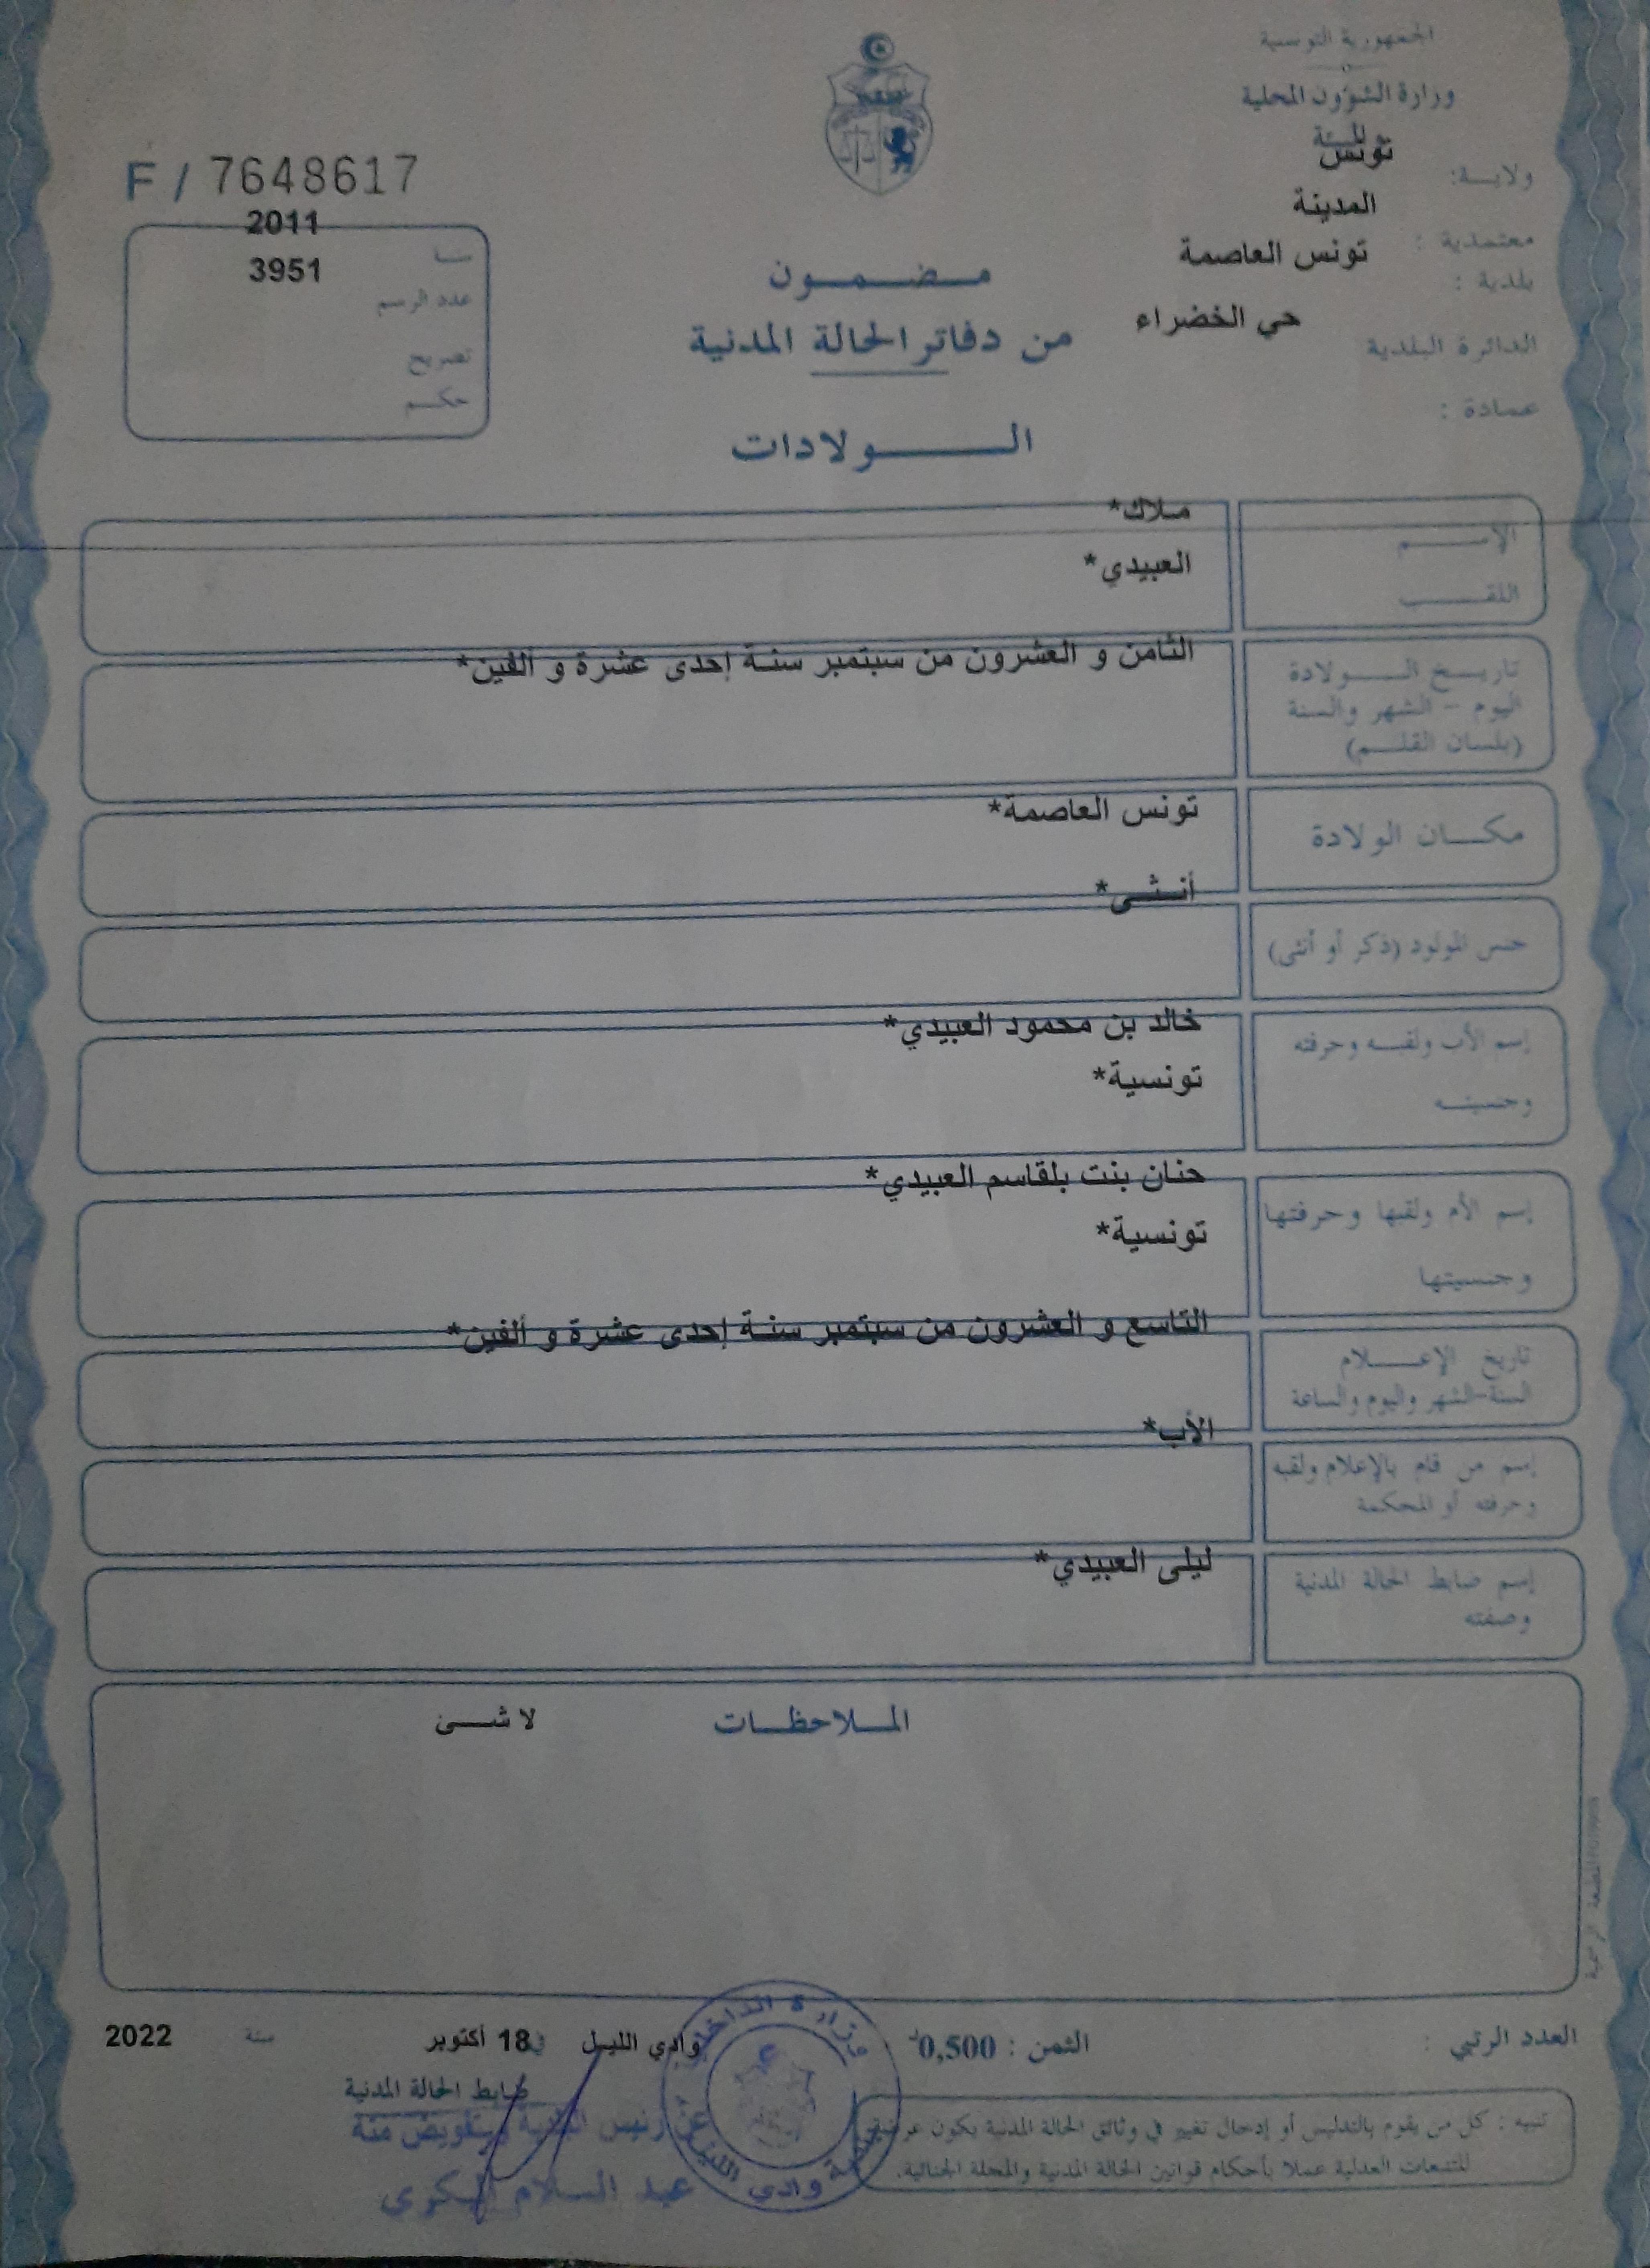 الجمهورية التونسية
وزارة الشؤون المحلية
والبيئة
ولايـــة: تونس
معتمدية : المدينة
بلدية : تونس العاصمة
الدائرة البلدية حي الخضراء
عمادة :
F / 7648617
سنـة 2011
عدد الرسم 3951
تصريح
حكـــم
مـضـمـون
من دفاتر الحالة المدنية
الــولادات
الإســـم ملاك*
اللقـــب العبيدي*
تاريــخ الـــولادة الثامن و العشرون من سبتمبر سنة إحدى عشرة و ألفين*
اليوم - الشهر والسنة
(بلسان القلــم)
مكــان الولادة تونس العاصمة*
جنس المولود (ذكر أو أنثى) أنــثــى*
إسم الأب ولقبـه وحرفته خالد بن محمود العبيدي*
وجنسيتــه تونسية*
إسم الأم ولقبها وحرفتها حنان بنت بلقاسم العبيدي*
وجنسيتها تونسية*
تاريخ الإعــــلام التاسع و العشرون من سبتمبر سنة إحدى عشرة و ألفين*
السنة-الشهر واليوم والساعة
إسم من قام بالإعلام ولقبه الأب*
وحرفته أو المحكمة
إسم ضابط الحالة المدنية ليلى العبيدي*
وصفته
المــلاحظــات لا شــئ
المطبعة الرسمية
العدد الرتبي :
الثمن : 0,500د
وادي الليـل في 18 أكتوبر سنة 2022
ضابط الحالة المدنية
عن رئيس البلدية وبتفويض منه
عبد السلام البكري
وزارة الداخلية
بلدية وادي الليل
تنبيه : كل من يقوم بالتدليس أو إدخال تغيير في وثائق الحالة المدنية يكون عرضة
للتتبعات العدلية عملا بأحكام قوانين الحالة المدنية والمجلة الجنائية.